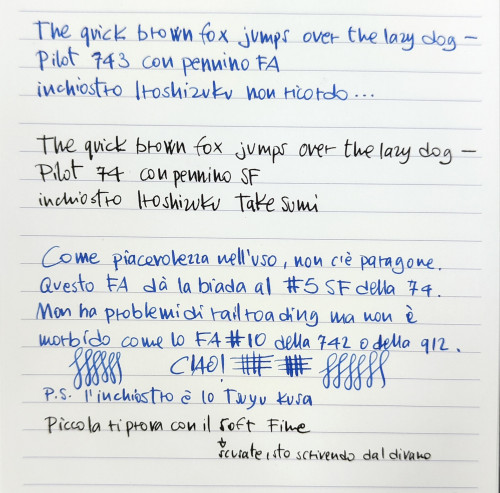 The quick brown fox jumps over the lazy dog –
Pilot 743 con pennino FA
inchiostro Iroshizuku non ricordo...
The quick brown fox jumps over the lazy dog –
Pilot 74 con pennino SF
inchiostro Iroshizuku Take Sumi
Come piacevolezza nell'uso, non c'è paragone.
Questo FA dà la biada al #5 SF della 74.
Non ha problemi di railroading ma non è
morbido come lo FA #10 della 742 o della 912.
CIAO!
P.S. l'inchiostro è lo Tsuyu Kusa
Piccola riprova con il Soft Fine
scusate, sto scrivendo dal divano